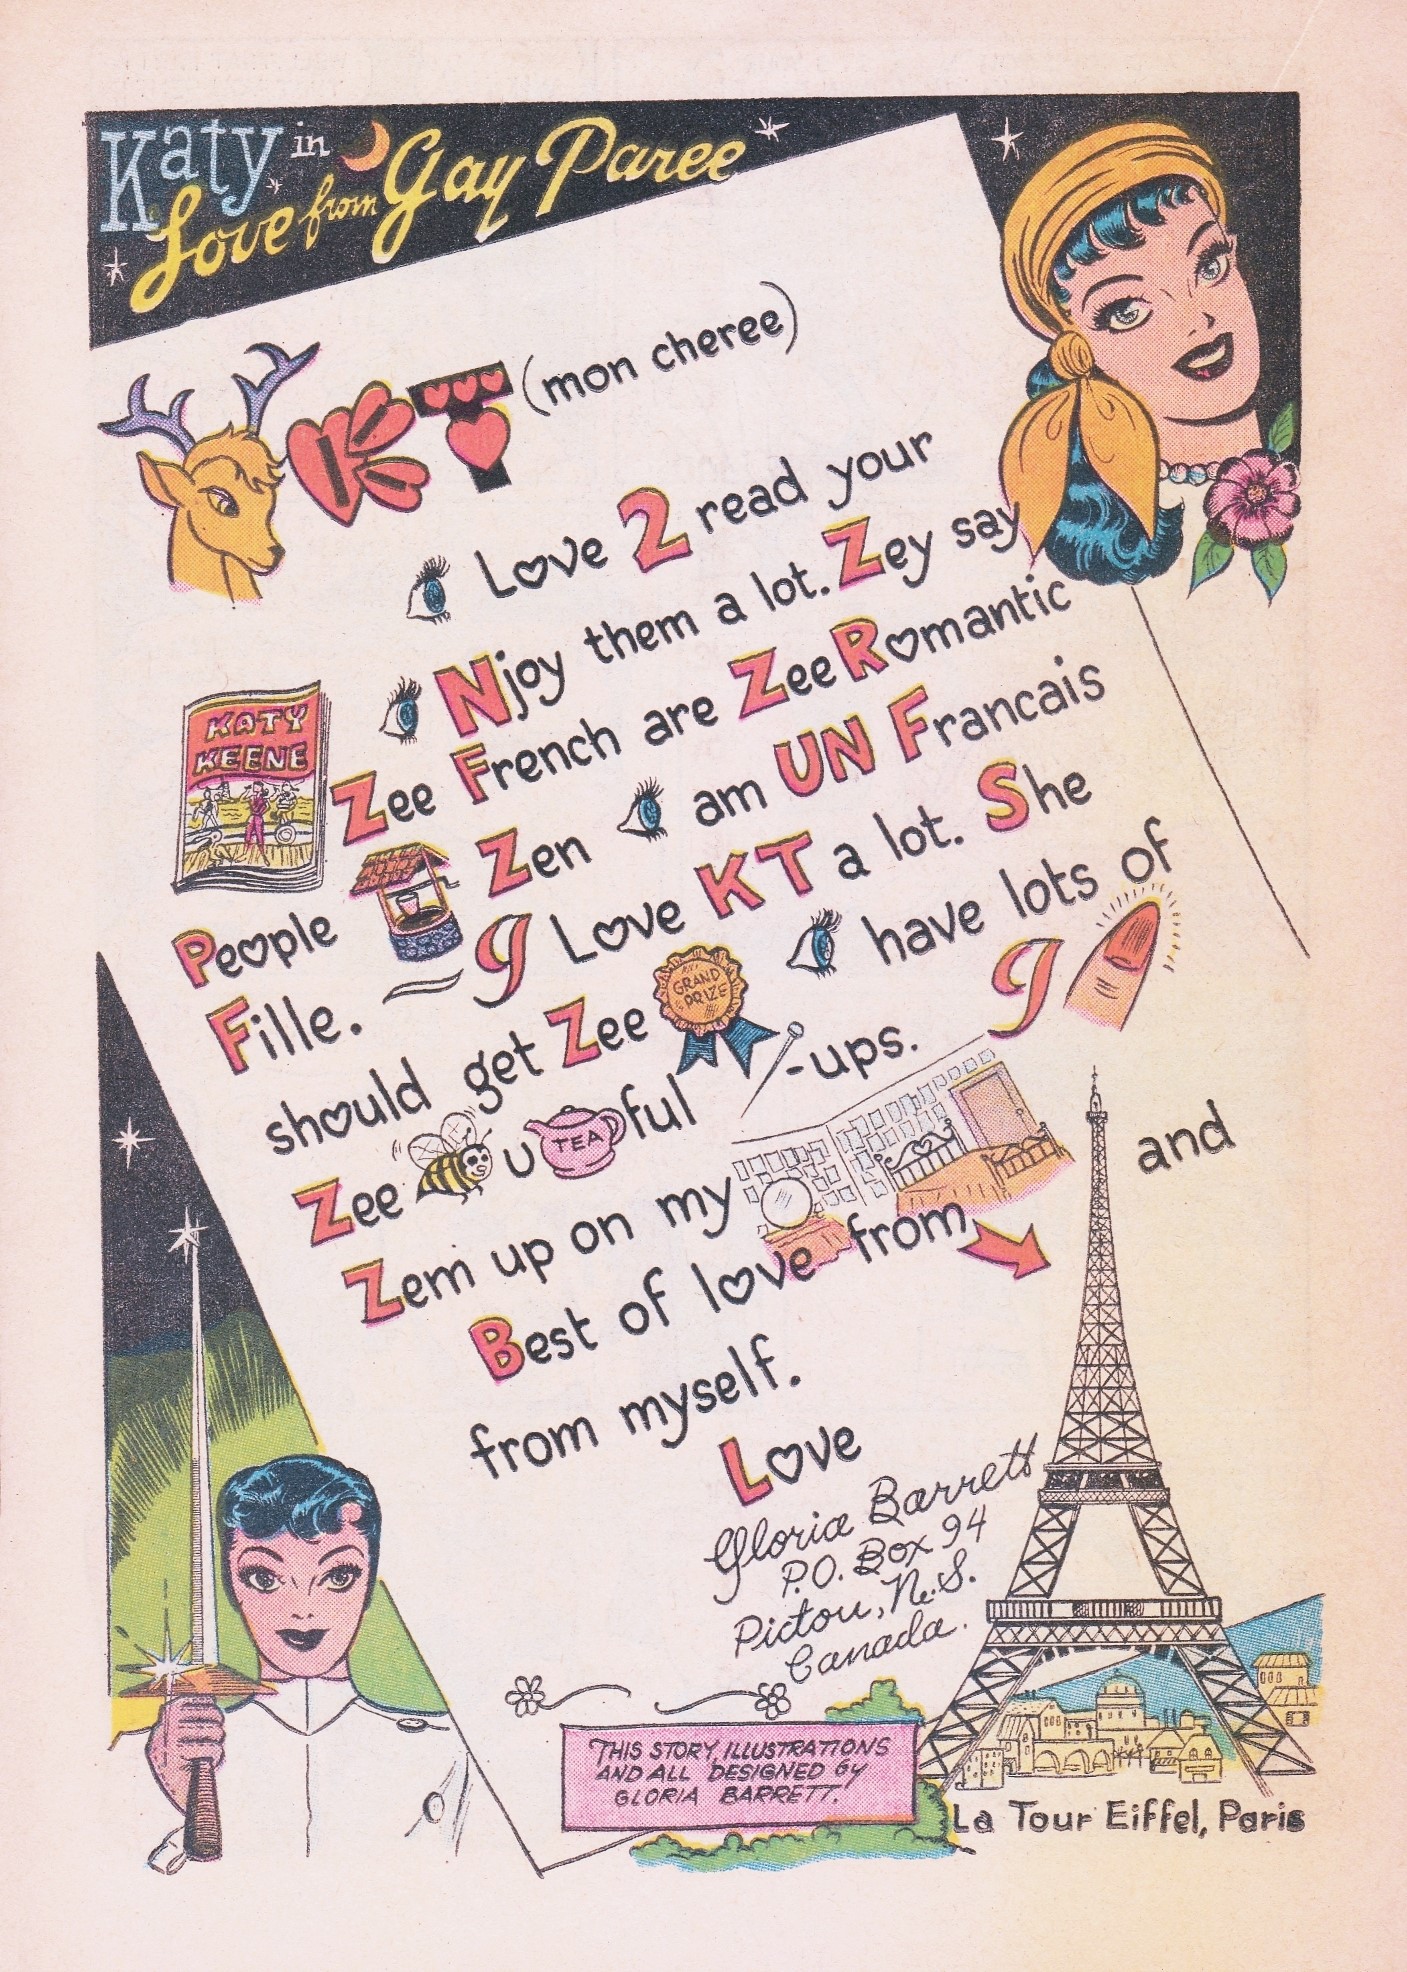 Katy in
Love from Gay Paree
KT (mon cheree)
Love 2 read your
KATY
KEENE
Njoy them a lot. Zey say
Zee French are Zee Romantic
People Zen am UN Francais
Fille. — I Love KT a lot. She
should get Zee GRAND PRIZE have lots of
Zee u TEA ful -ups. I
Zem up on my and
Best of love from
from myself.
Love
Gloria Barrett
P.O. Box 94
Pictou, N.S.
Canada.
THIS STORY, ILLUSTRATIONS
AND ALL DESIGNED BY
GLORIA BARRETT.
La Tour Eiffel, Paris